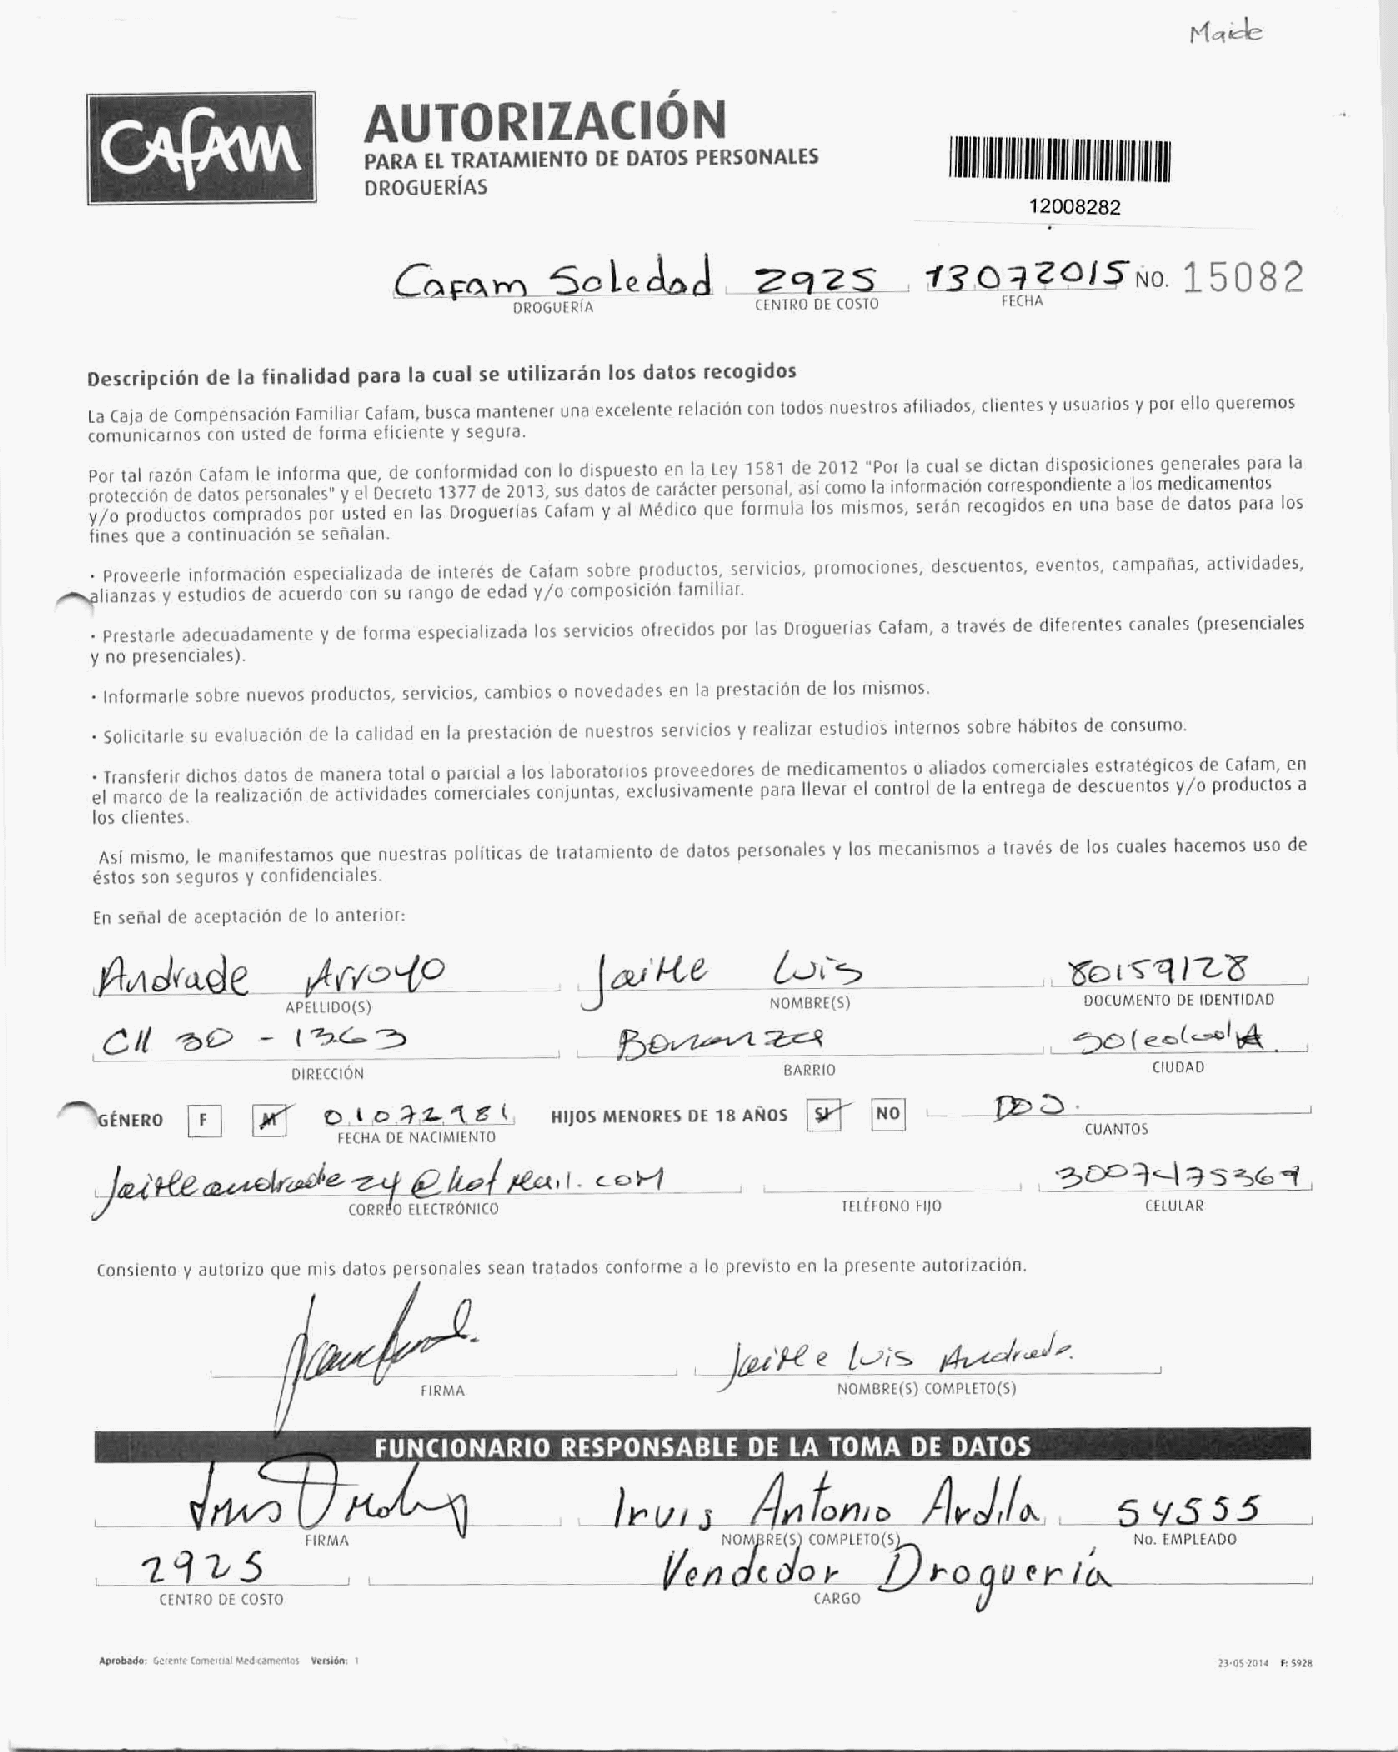 Maide
CAFAM
AUTORIZACIÓN
PARA EL TRATAMIENTO DE DATOS PERSONALES
DROGUERÍAS
12008282
Cafam Soledad 2925 13072015 NO. 15082
DROGUERÍA CENTRO DE COSTO FECHA
Descripción de la finalidad para la cual se utilizarán los datos recogidos
La Caja de Compensación Familiar Cafam, busca mantener una excelente relación con todos nuestros afiliados, clientes y usuarios y por ello queremos
comunicarnos con usted de forma eficiente y segura.
Por tal razón Cafam le informa que, de conformidad con lo dispuesto en la Ley 1581 de 2012 "Por la cual se dictan disposiciones generales para la
protección de datos personales" y el Decreto 1377 de 2013, sus datos de carácter personal, así como la información correspondiente a los medicamentos
y/o productos comprados por usted en las Droguerías Cafam y al Médico que formula los mismos, serán recogidos en una base de datos para los
fines que a continuación se señalan.
· Proveerle información especializada de interés de Cafam sobre productos, servicios, promociones, descuentos, eventos, campañas, actividades,
alianzas y estudios de acuerdo con su rango de edad y/o composición familiar.
· Prestarle adecuadamente y de forma especializada los servicios ofrecidos por las Droguerías Cafam, a través de diferentes canales (presenciales
y no presenciales).
· Informarle sobre nuevos productos, servicios, cambios o novedades en la prestación de los mismos.
· Solicitarle su evaluación de la calidad en la prestación de nuestros servicios y realizar estudios internos sobre hábitos de consumo.
· Transferir dichos datos de manera total o parcial a los laboratorios proveedores de medicamentos o aliados comerciales estratégicos de Cafam, en
el marco de la realización de actividades comerciales conjuntas, exclusivamente para llevar el control de la entrega de descuentos y/o productos a
los clientes.
Así mismo, le manifestamos que nuestras políticas de tratamiento de datos personales y los mecanismos a través de los cuales hacemos uso de
éstos son seguros y confidenciales.
En señal de aceptación de lo anterior:
Andrade Arroyo Jaime Luis 80159128
APELLIDO(S) NOMBRE(S) DOCUMENTO DE IDENTIDAD
Cll 30 - 1363 Bonanza Soledad
DIRECCIÓN BARRIO CIUDAD
GÉNERO F M 01071981 HIJOS MENORES DE 18 AÑOS SI NO DOS.
FECHA DE NACIMIENTO CUANTOS
jaimeandrade24@hotmail.com 3007475369
CORREO ELECTRÓNICO TELÉFONO FIJO CELULAR
Consiento y autorizo que mis datos personales sean tratados conforme a lo previsto en la presente autorización.
Jaime Luis Andrade.
FIRMA NOMBRE(S) COMPLETO(S)
FUNCIONARIO RESPONSABLE DE LA TOMA DE DATOS
Irvis Antonio Ardila 54555
FIRMA NOMBRE(S) COMPLETO(S) No. EMPLEADO
2925 Vendedor Droguería
CENTRO DE COSTO CARGO
Aprobado: Gerente Comercial Medicamentos Versión: 1 23-05-2014 F: 5928